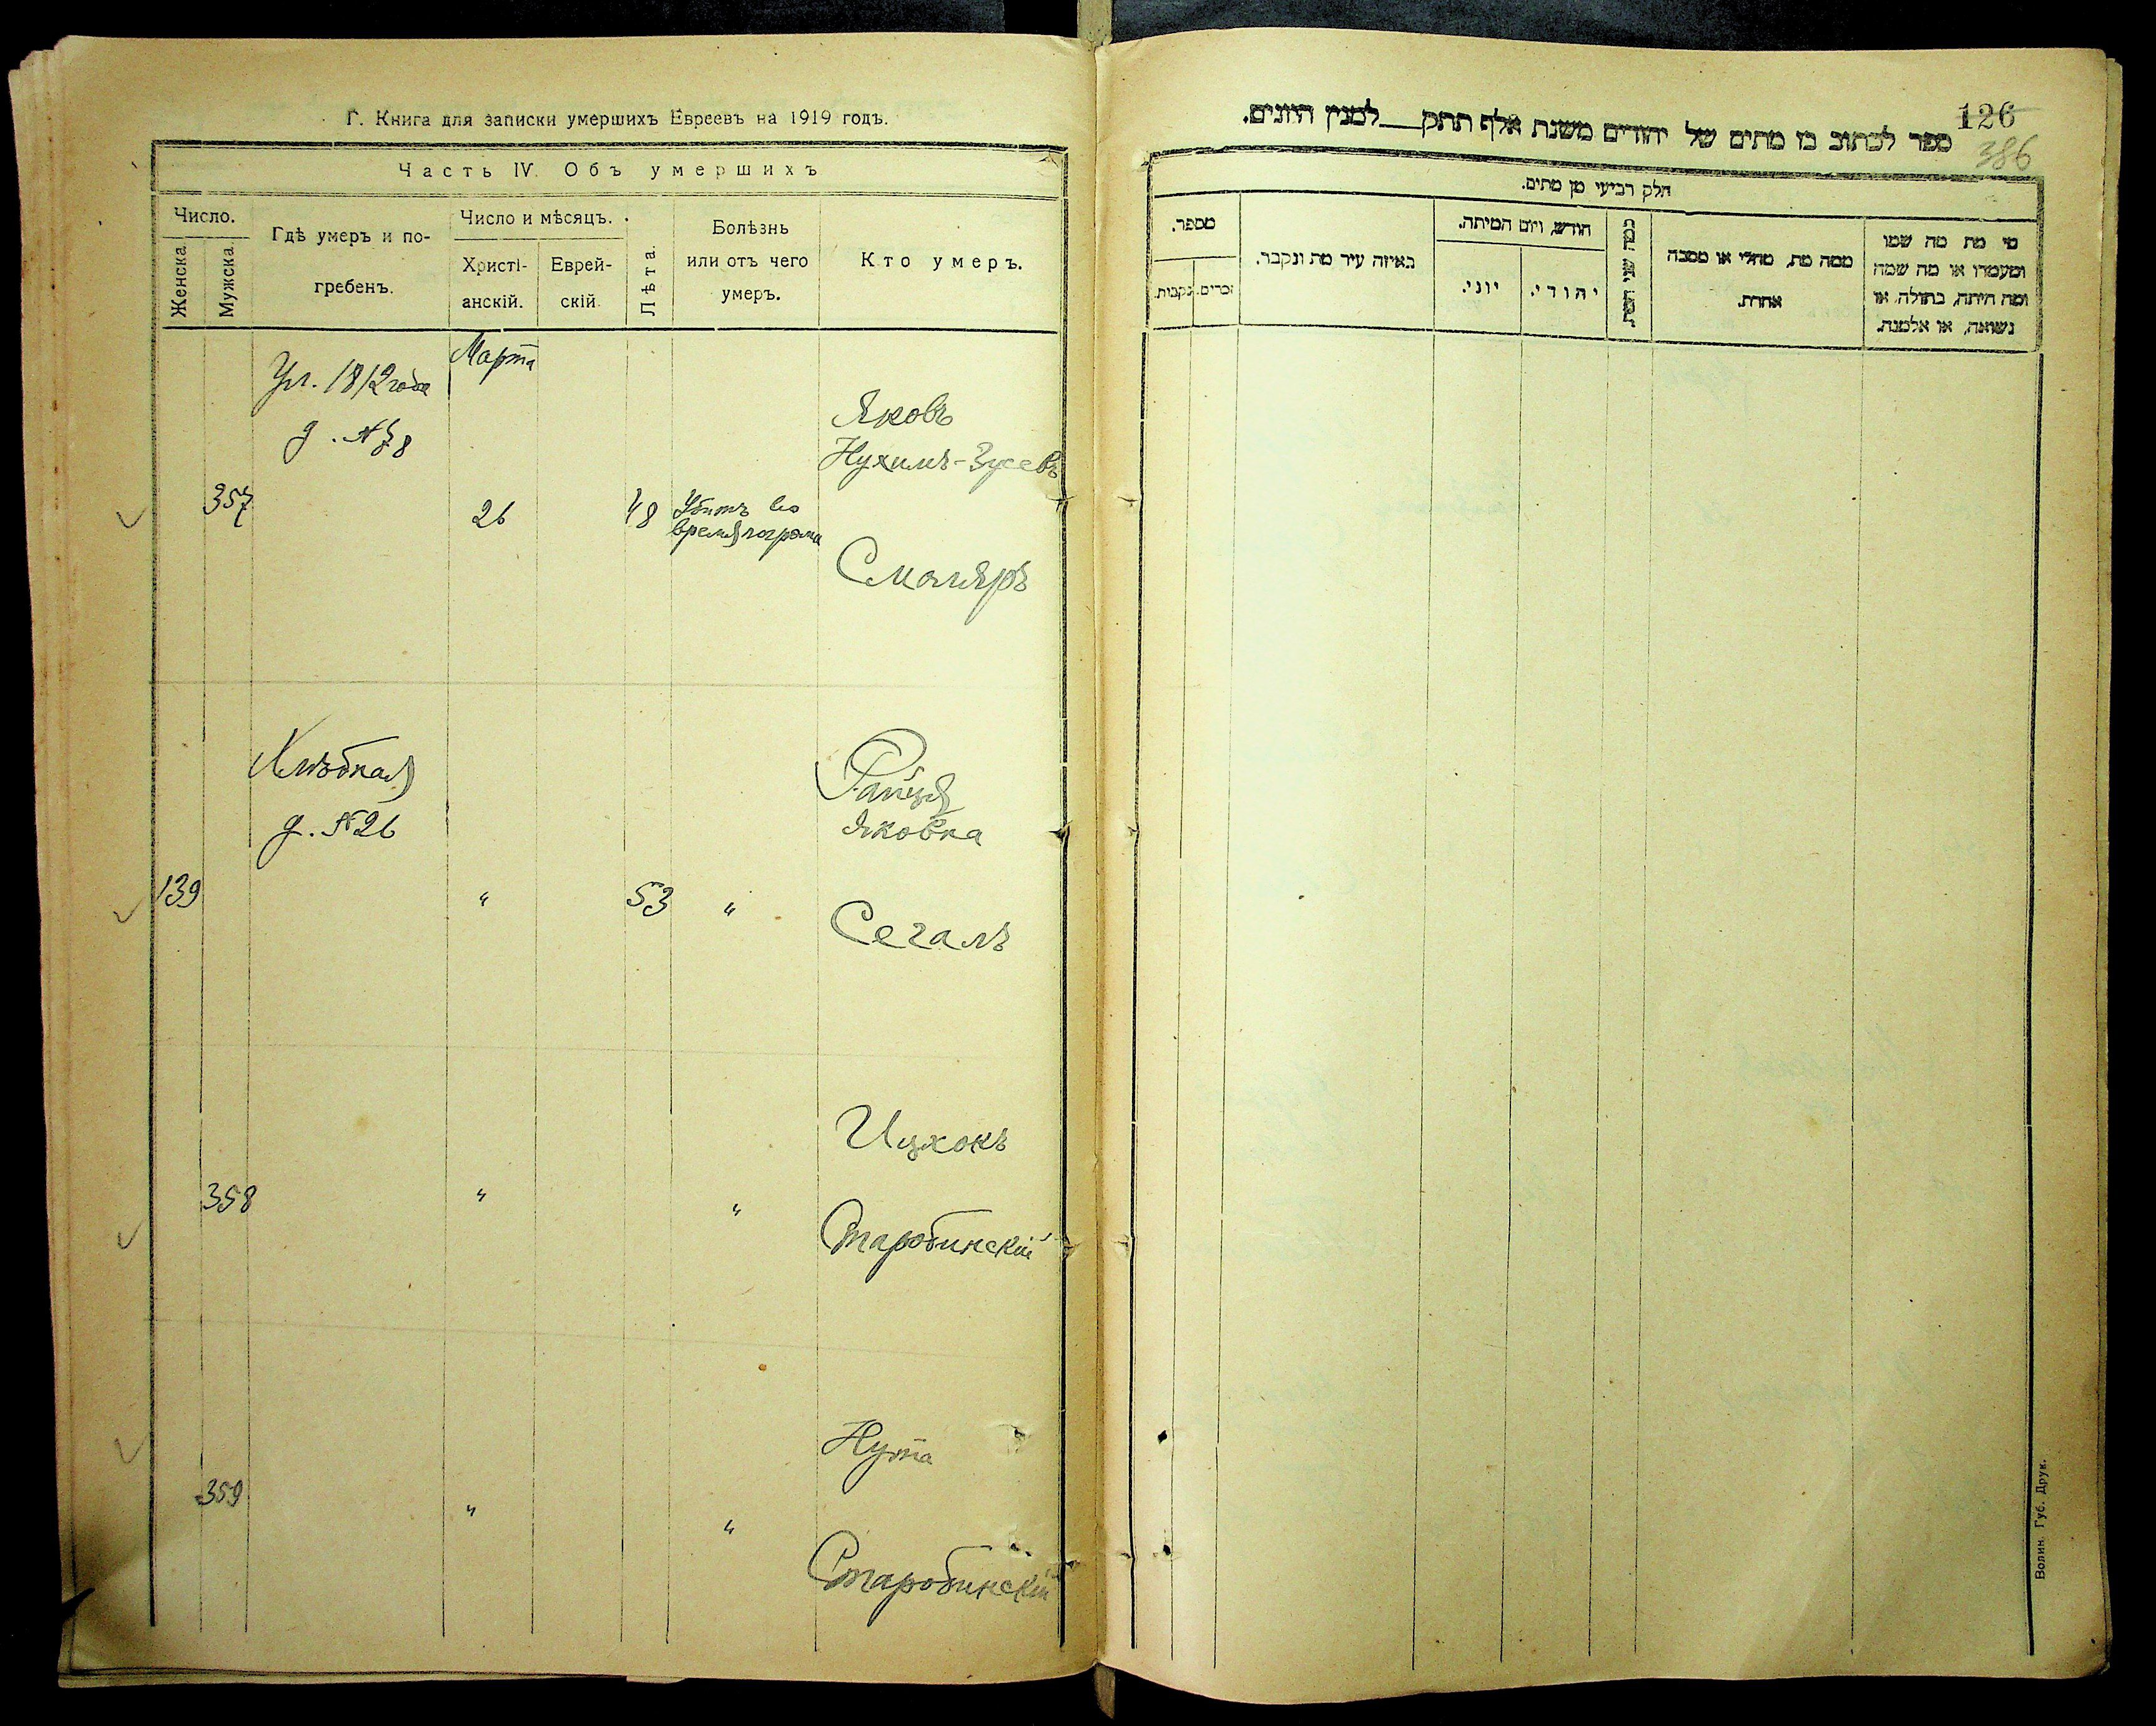 Г. Книга для записки умершихъ Евреевъ на 1919 годъ.
Часть IV. Объ умершихъ
Число.
Женска
Мужска
Гдѣ умеръ и по-
гребенъ.
Число и мѣсяцъ.
Христі-
анскій.
Еврей-
скій
Лѣта.
Болѣзнь
или отъ чего
умеръ.
Кто умеръ.
Марта
Ул. 1812 года
д. №
Яковъ
Нухимъ-Зусевъ
357
26
48
Убитъ во
время погрома
Смоляръ
Хлѣбная
д. №26
Райця
Яковна
139
"
53
"
Сегалъ
Ицхокъ
358
"
"
Старобинскій
Нута
359
"
"
Старобинскій
126
386
ספר לכתוב בו מתים של יהודים משנת אלף תתק___למנין היונים.
חלק רביעי מן מתים.
מספר.
נקבות.
זכרים.
באיזה עיר מת ונקבר.
חודש, ויום המיתה.
יוני.
יהודי.
כמה שני המת.
ממה מת, מחלי או מסבה
אחרת.
מי מת מה שמו
ומעמדו או מה שמה
ומה היתה, בתולה, או
נשואה, או אלמנה.
Волин. Губ. Друк.